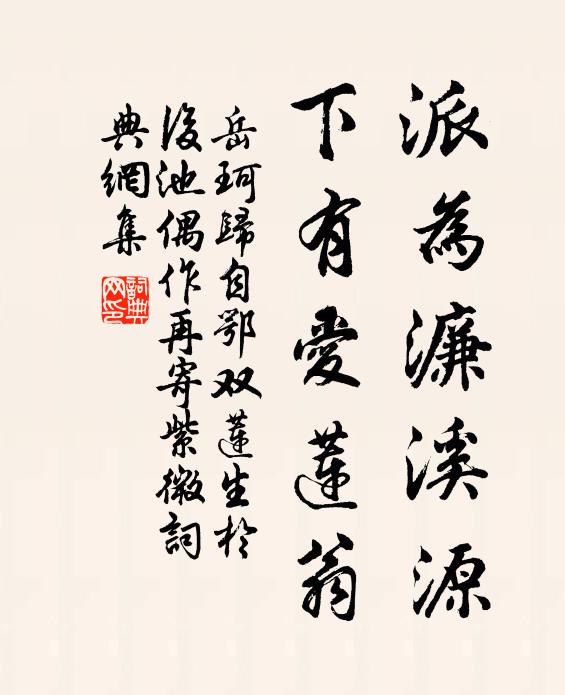 派為濂溪源
下有愛蓮翁
岳珂歸自鄂双蓮生於
後池偶作再寄紫微詞
典網集
詞典
网印